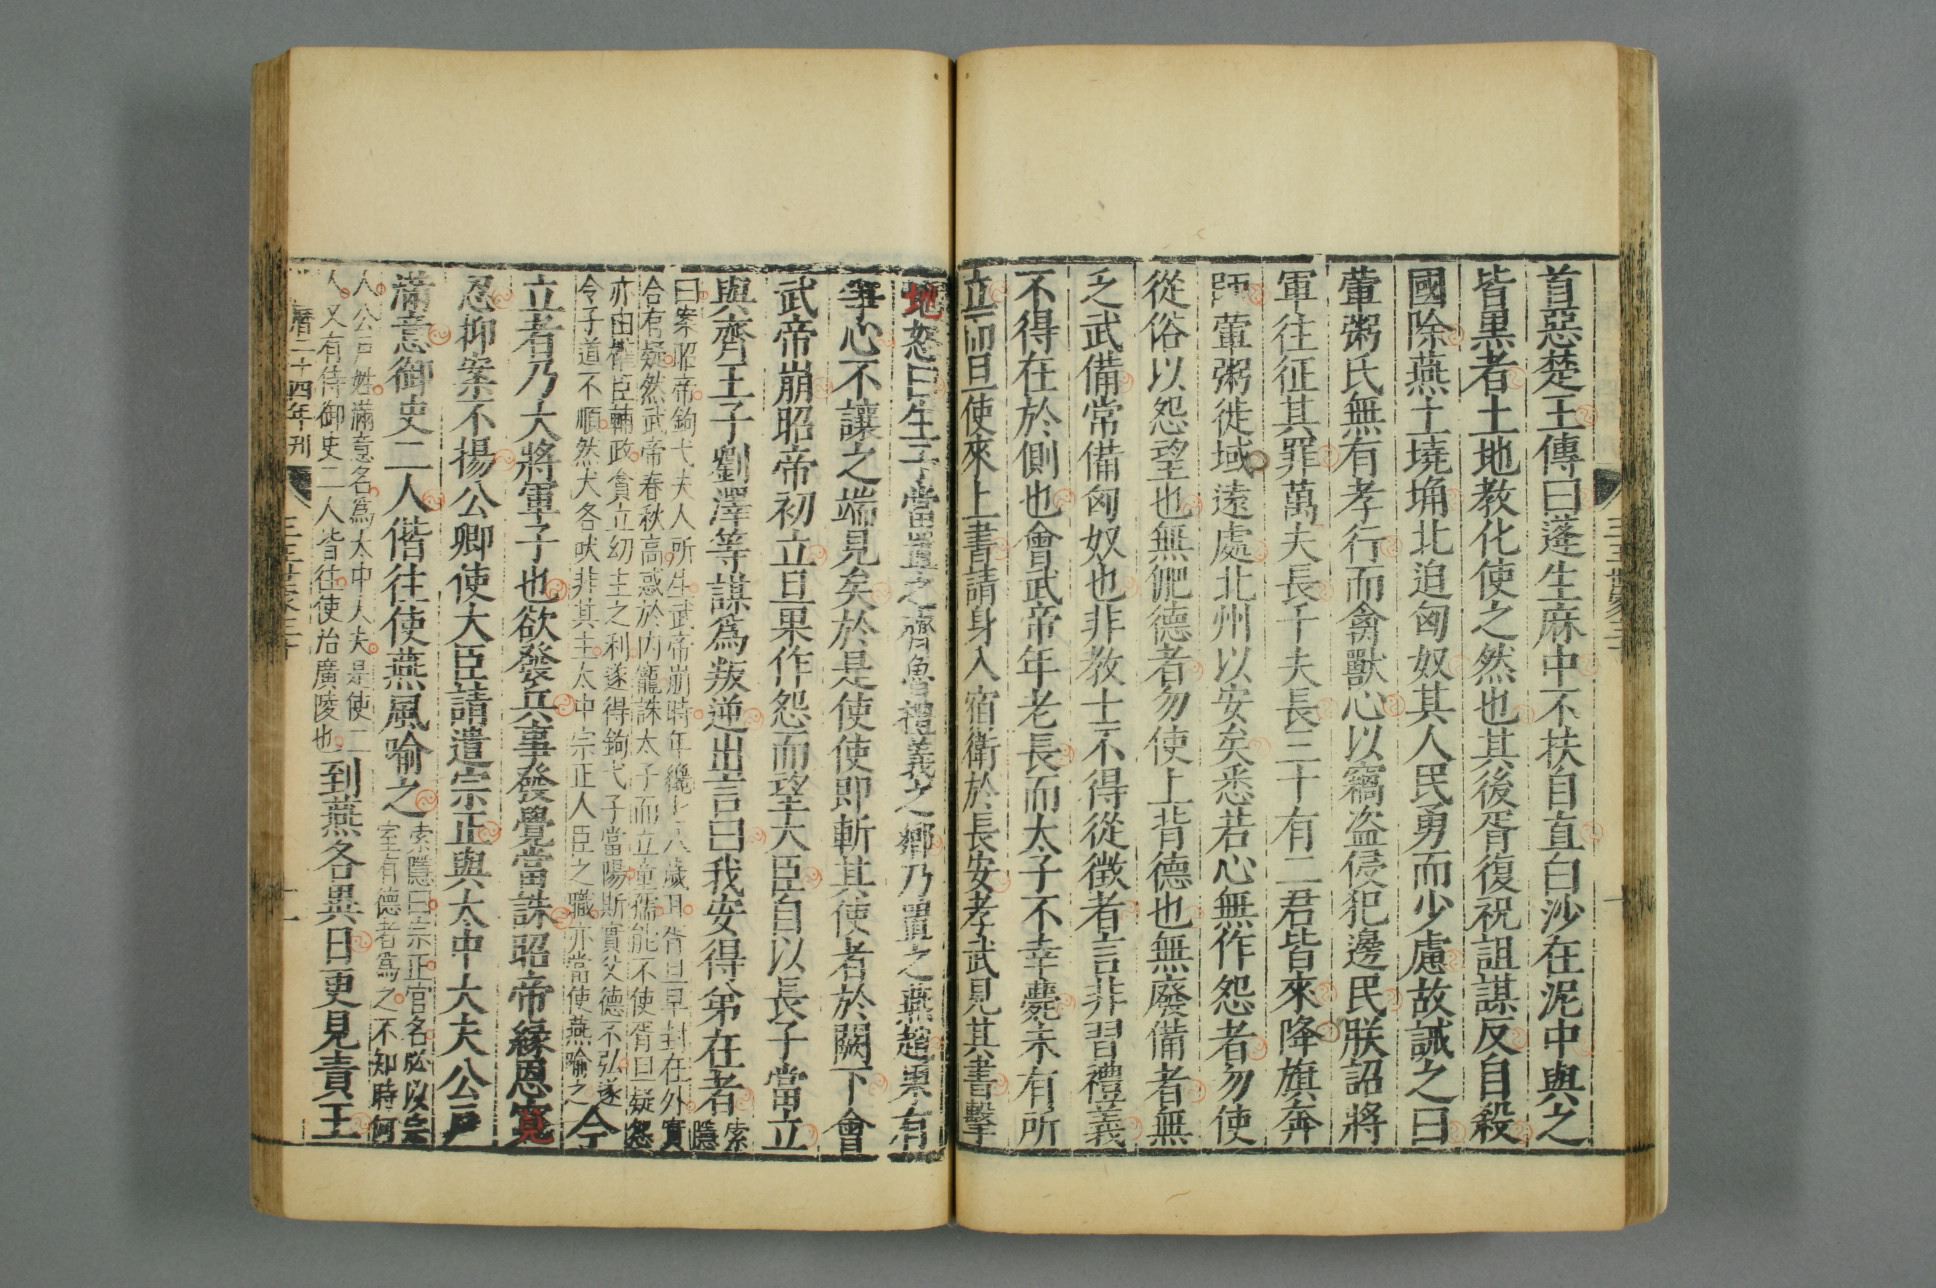 首惡楚王傳曰蓬生麻中不扶自直白沙在泥中與之
皆黑者土地教化使之然也其後胥復祝詛謀反自殺
國除燕土墝埆北迫匈奴其人民勇而少慮故誡之曰
葷粥氏無有孝行而禽獸心以竊盜侵犯邊民朕詔將
軍往征其罪萬夫長千夫長三十有二君皆來降旗奔
師葷粥徙域遠處北州以安矣悉若心無作怨者勿使
從俗以怨望也無俷德者勿使上背德也無廢備者無
乏武備常備匈奴也非教士不得從徵者言非習禮義
不得在於側也會武帝年老長而太子不幸薨未有所
立而旦使來上書請身入宿衛於長安孝武見其書擊
地怒曰生子當置之齊魯禮義之鄉乃置之燕趙果有
爭心不讓之端見矣於是使使即斬其使者於闕下會
武帝崩昭帝初立旦果作怨而望大臣自以長子當立
與齊王子劉澤等謀爲叛逆出言曰我安得弟在者索隱
曰案昭帝鉤弋夫人所生武帝崩時年纔七八歲耳胥旦早封在外實
合有疑然武帝春秋高惑於內寵誅太子而立童孺能不使胥曰疑怨
亦由權臣輔政貪立幼主之利遂得鉤弋子當陽斯實父德不弘遂
令子道不順然犬各吠非其主太中宗正人臣之職亦當使燕喻之今
立者乃大將軍子也欲發兵事發覺當誅昭帝緣恩寬
忍抑案不揚公卿使大臣請遣宗正與太中大夫公戶
滿意御史二人偕往使燕風喻之索隱曰宗正官名必以宗
室有德者爲之不知時何
人公戶姓滿意名爲太中大夫是使二
人又有侍御史二人皆往使治廣陵也到燕各異日更見責王
曆二十四年刊
三王世家三十
十一